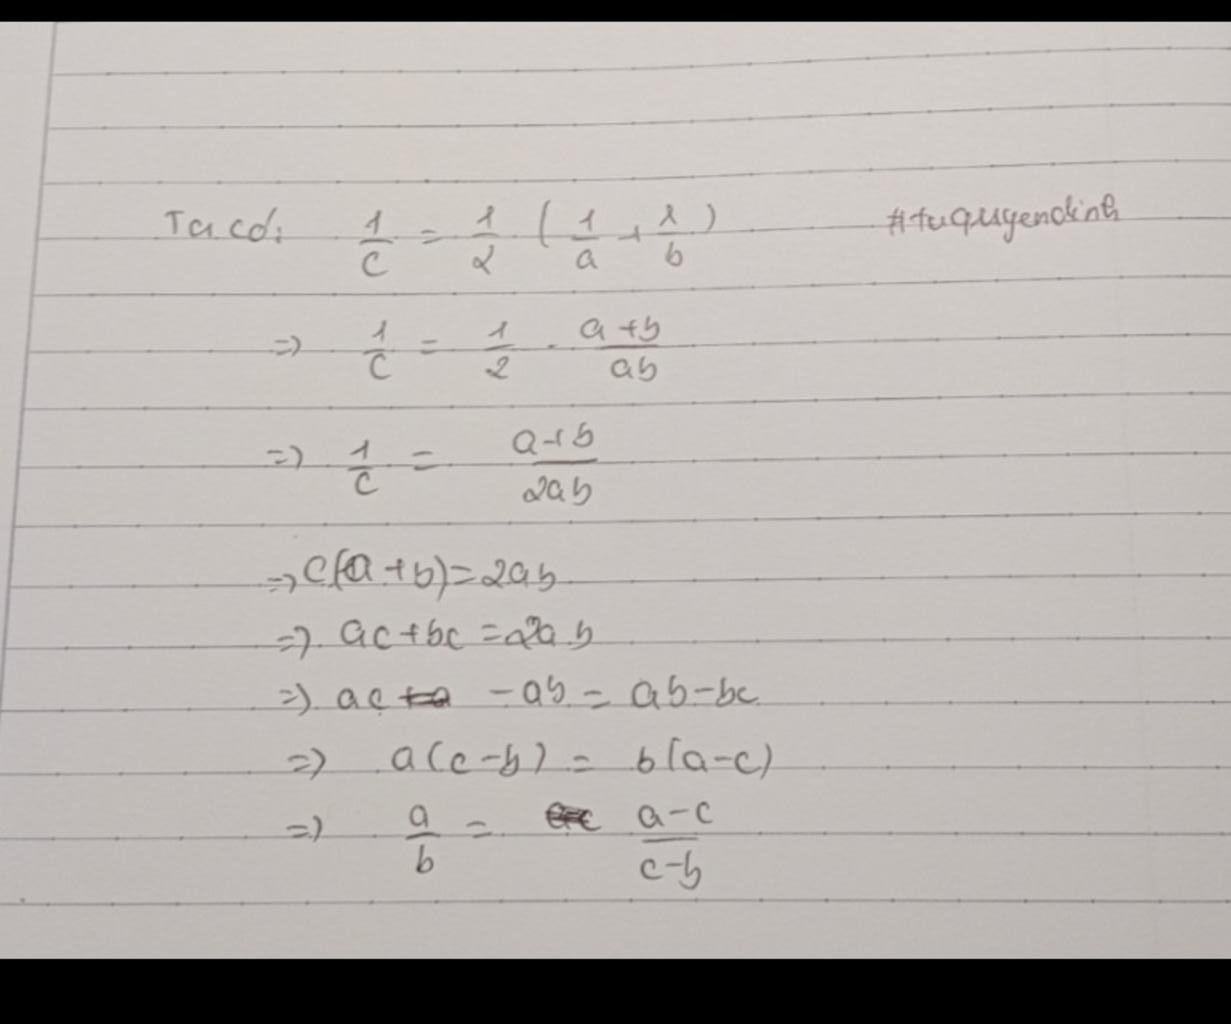 Ta có: 1/c = 1/2 (1/a + 1/b) #tuquyendinh
=> 1/c = 1/2 . a+b/ab
=> 1/c = a+b/2ab
=> c(a+b)=2ab
=> ac+bc=2ab
=> ac -ab = ab-bc
=> a(c-b) = b(a-c)
=> a/b = a-c/c-b